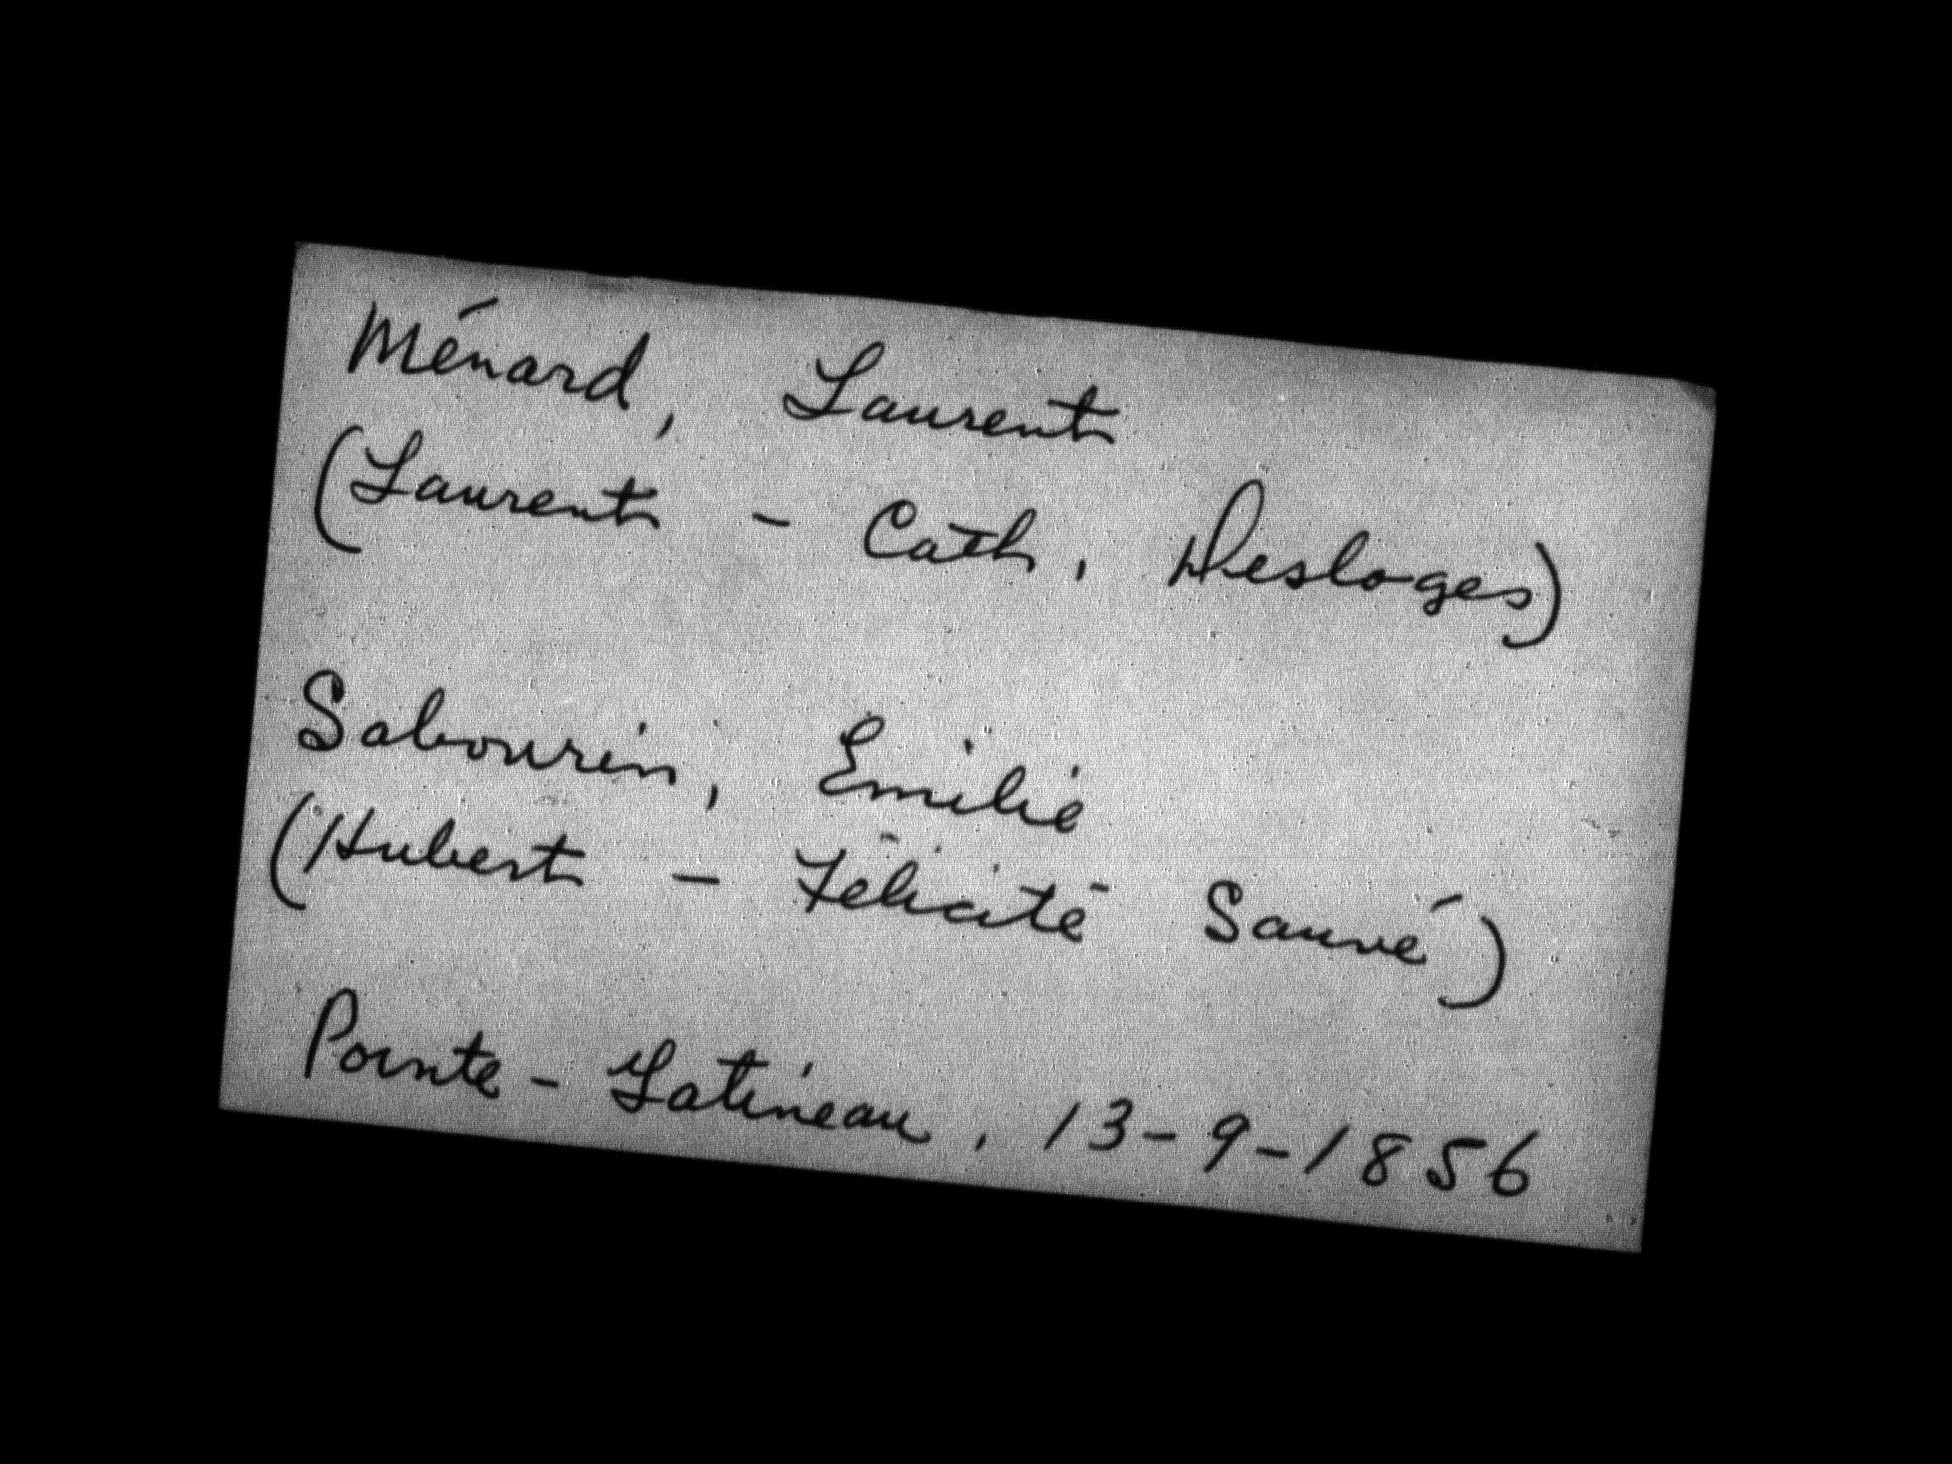 Ménard, Laurent
(Laurent - Cath, Desloges)
Sabourin, Emilie
(Hubert - Félicité Sauvé)
Pointe - Gatineau, 13-9-1856